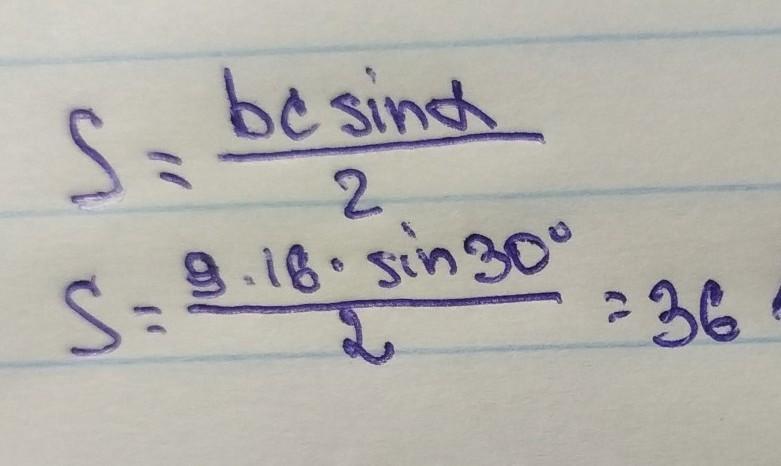 S = bc sinα / 2
S = 9 · 16 · sin 30° / 2 = 36